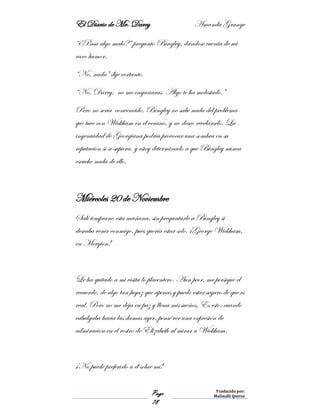 El Diario de Mr. Darcy Amanda Grange
"¿Pasa algo malo?" pregunto Bingley, dándose cuenta de mi
raro humor.
"No, nada" dije cortante.
"No, Darcy, no me engañaras. Algo te ha molestado."
Pero no sería convencido. Bingley no sabe nada del problema
que tuve con Wickham en el verano, y no deseo revelárselo. La
ingenuidad de Georgiana podría provocar una sombra en su
reputación si se supiera, y estoy determinado a que Bingley nunca
escuche nada de ello.
Miércoles 20 de Noviembre
Salí temprano esta mañana, sin preguntarle a Bingley si
deseaba venir conmigo, pues quería estar solo. ¡George Wickham,
en Meryton!
Le ha quitado a mi visita lo placentero. Aun peor, me persigue el
recuerdo, de algo tan fugaz que apenas y puedo estar seguro de que es
real. Pero no me deja en paz y llena mis sueños. Es esto: cuando
cabalgaba hacia las damas ayer, pensé ver una expresión de
admiración en el rostro de Elizabeth al mirar a Wickham.
¡No puede preferirlo a el sobre mí!
Page
78
Traducido por:
Malinalli Quiroz